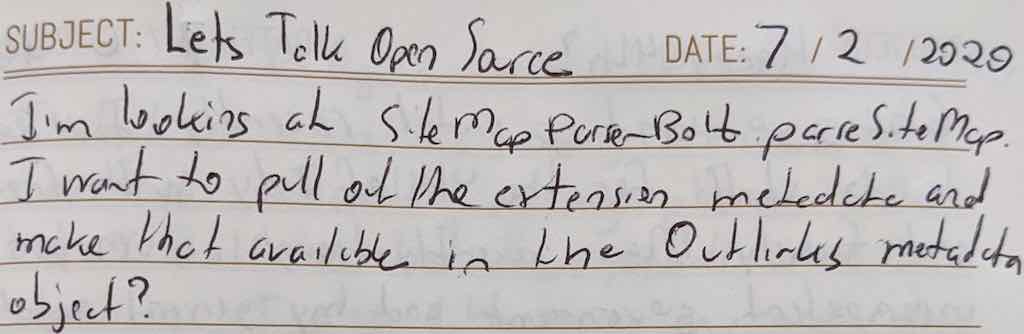 SUBJECT: Lets Talk Open Sarce DATE: 7/2/2020
I'm looking at SiteMapParserBolt.parseSiteMap.
I want to pull out the extension metadata and
make that available in the Outlinks metadata
object?